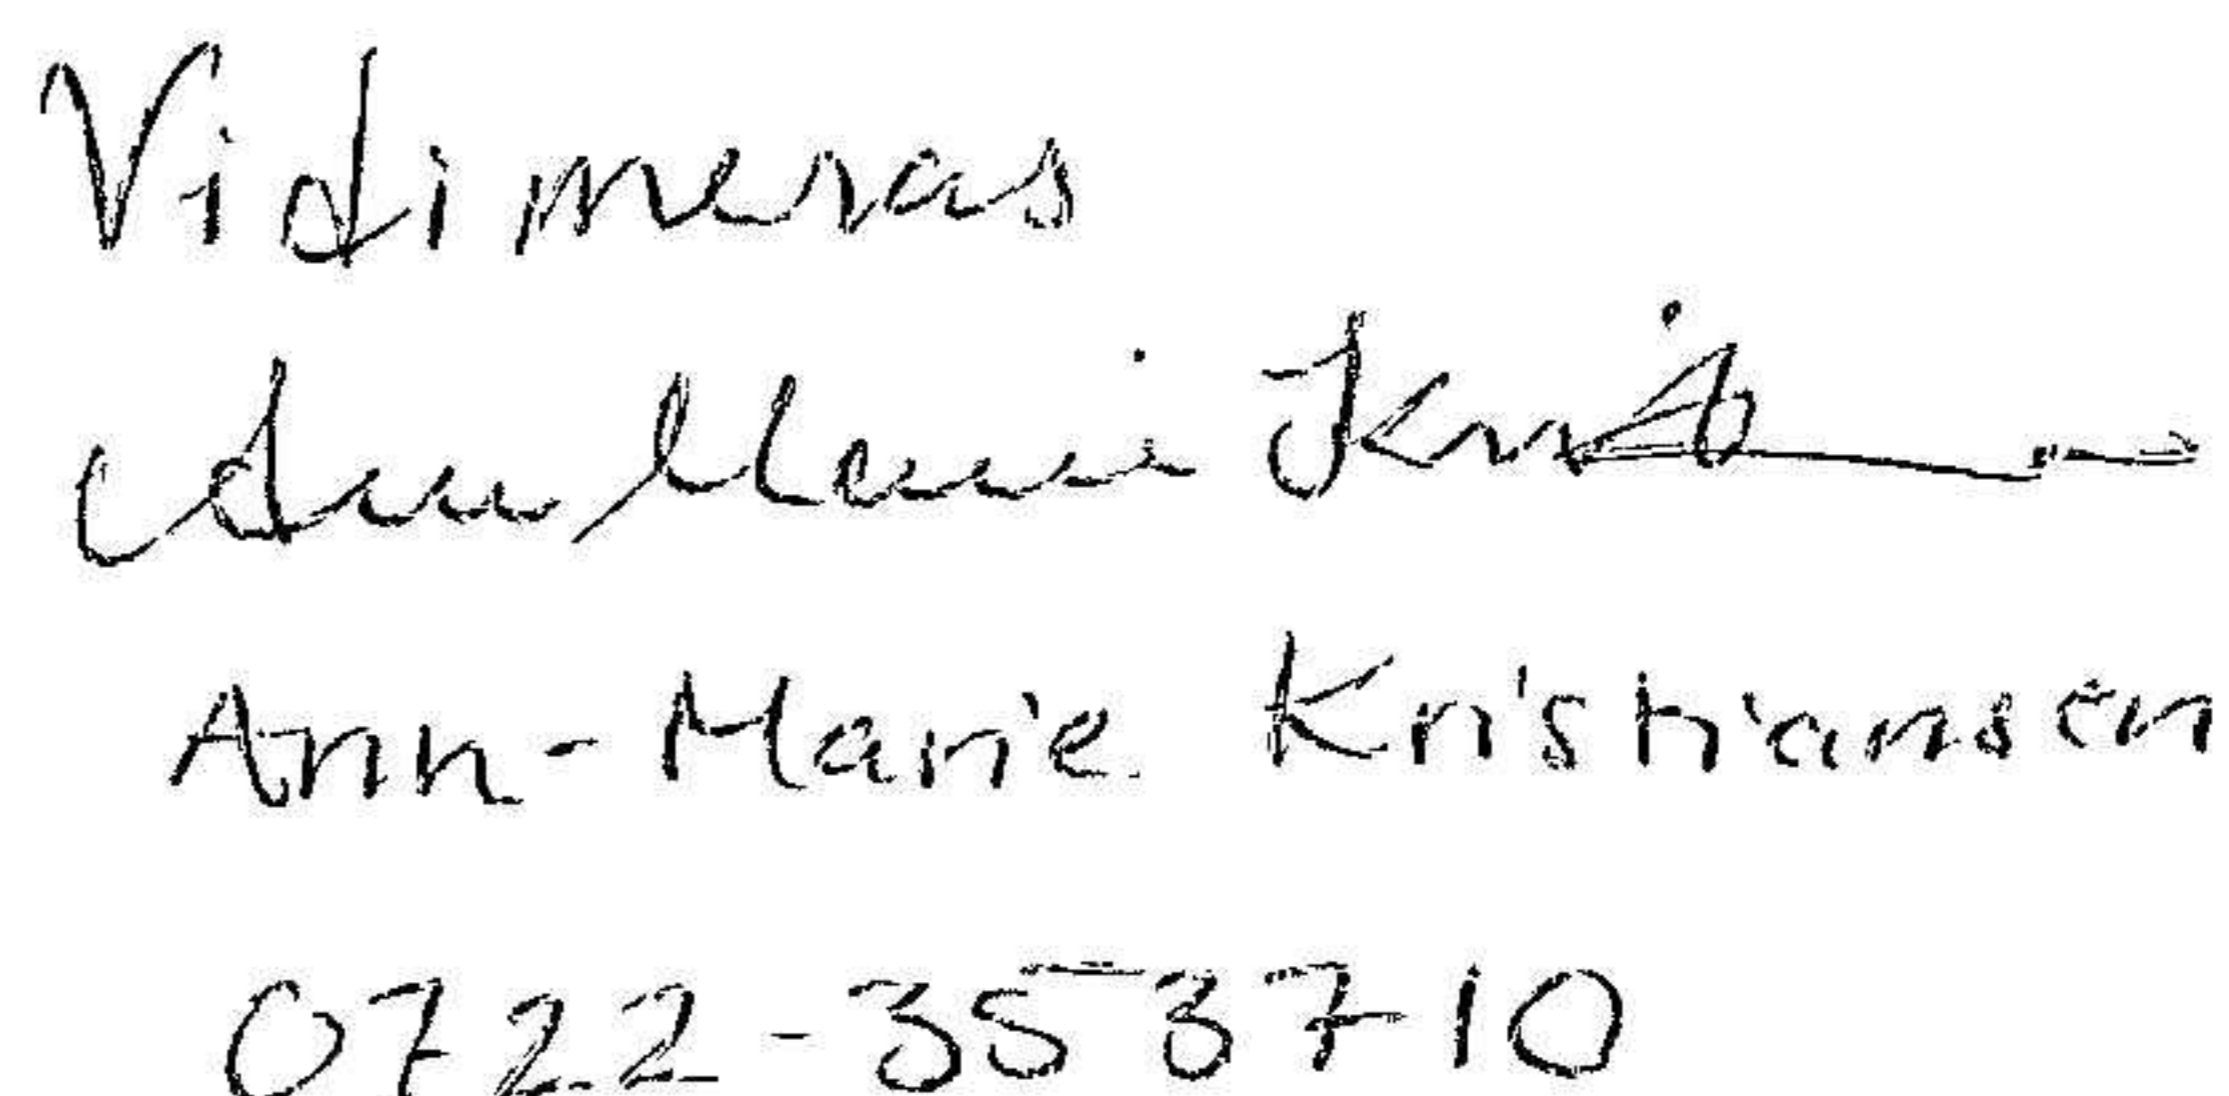 Vidimeras
Ann Marie
Ann-Marie Kristiansen
0722-353710